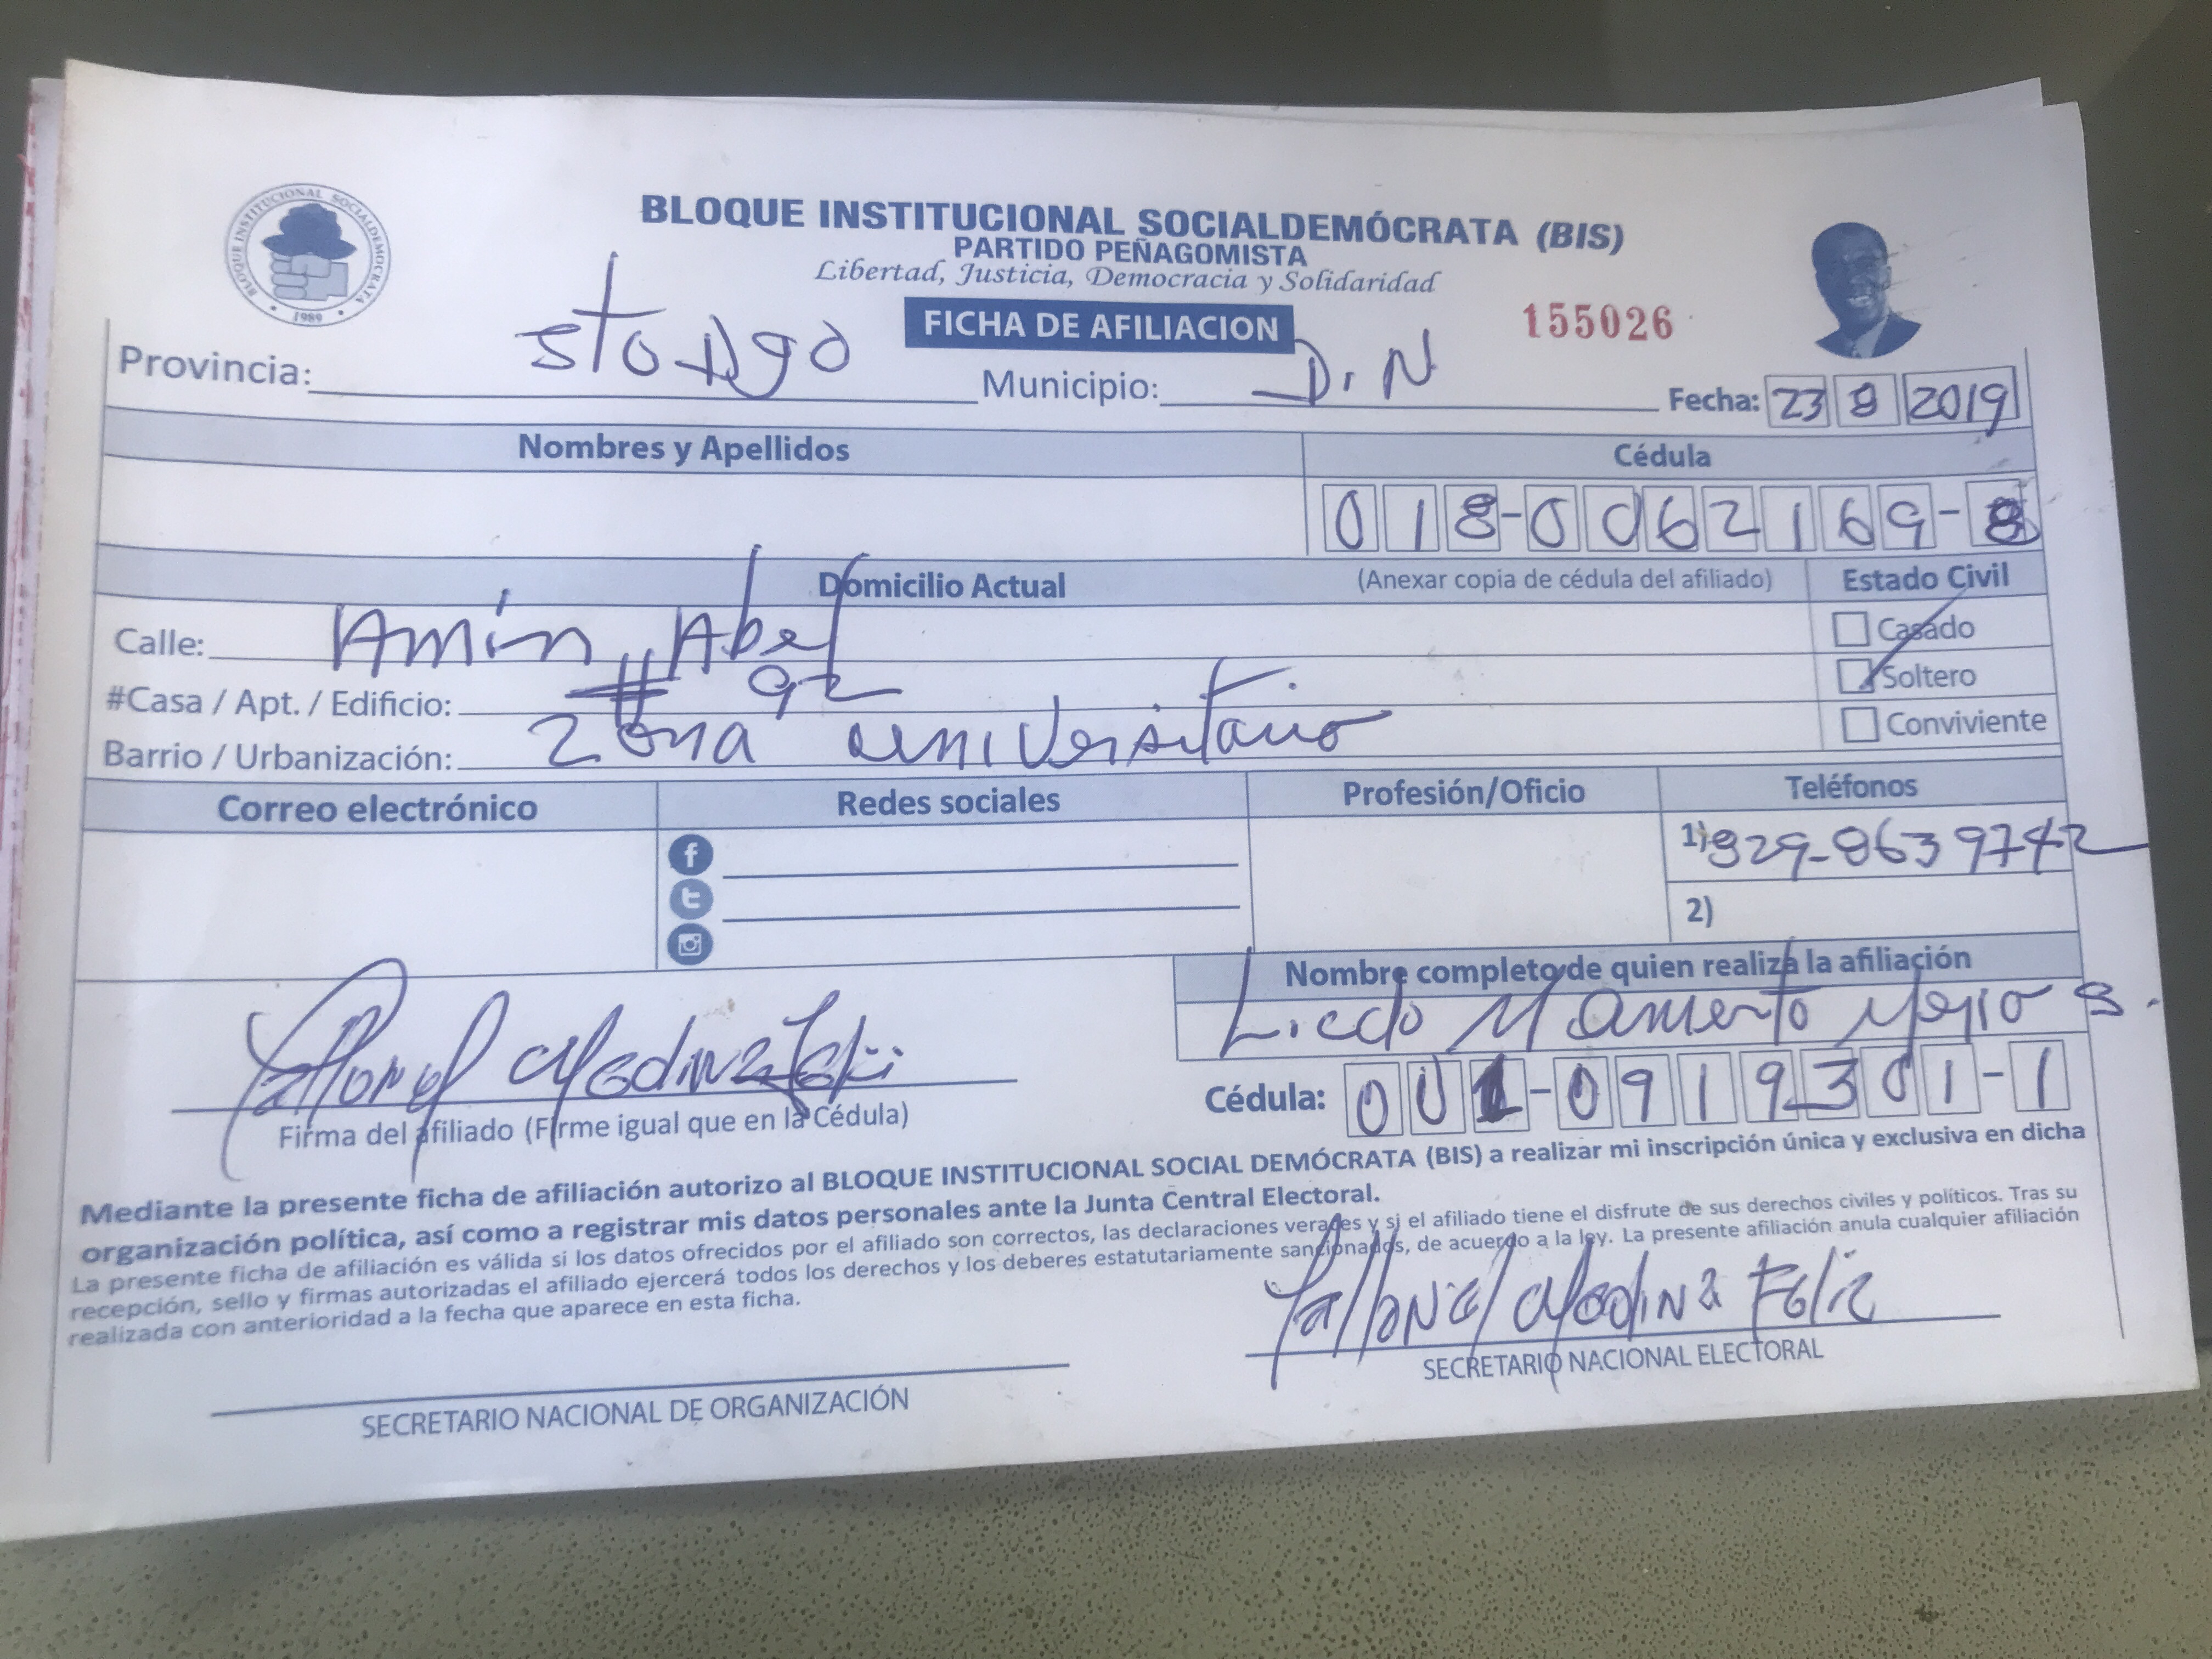 BLOQUE INSTITUCIONAL SOCIALDEMOCRATA
1989
BLOQUE INSTITUCIONAL SOCIALDEMÓCRATA (BIS)
PARTIDO PEÑAGOMISTA
Libertad, Justicia, Democracia y Solidaridad
FICHA DE AFILIACION
155026
Provincia: Sto Dgo Municipio: D.N Fecha: 23 8 2019
Nombres y Apellidos Cédula
018-0062169-8
Domicilio Actual (Anexar copia de cédula del afiliado) Estado Civil
Calle: Amín Abel Casado
#Casa / Apt. / Edificio: # 92 Soltero
Barrio / Urbanización: Zona universitario Conviviente
Correo electrónico Redes sociales Profesión/Oficio Teléfonos
1) 829-8639742
2)
Nombre completo de quien realiza la afiliación
Licdo Mamerto Mejio S.
Cédula: 001-0919301-1
Yallonel Medina Feliz
Firma del afiliado (Firme igual que en la Cédula)
Mediante la presente ficha de afiliación autorizo al BLOQUE INSTITUCIONAL SOCIAL DEMÓCRATA (BIS) a realizar mi inscripción única y exclusiva en dicha
organización política, así como a registrar mis datos personales ante la Junta Central Electoral.
La presente ficha de afiliación es válida si los datos ofrecidos por el afiliado son correctos, las declaraciones veraces y si el afiliado tiene el disfrute de sus derechos civiles y políticos. Tras su
recepción, sello y firmas autorizadas el afiliado ejercerá todos los derechos y los deberes estatutariamente sancionados, de acuerdo a la ley. La presente afiliación anula cualquier afiliación
realizada con anterioridad a la fecha que aparece en esta ficha.
Yallonel Medina Feliz
SECRETARIO NACIONAL DE ORGANIZACIÓN SECRETARIO NACIONAL ELECTORAL